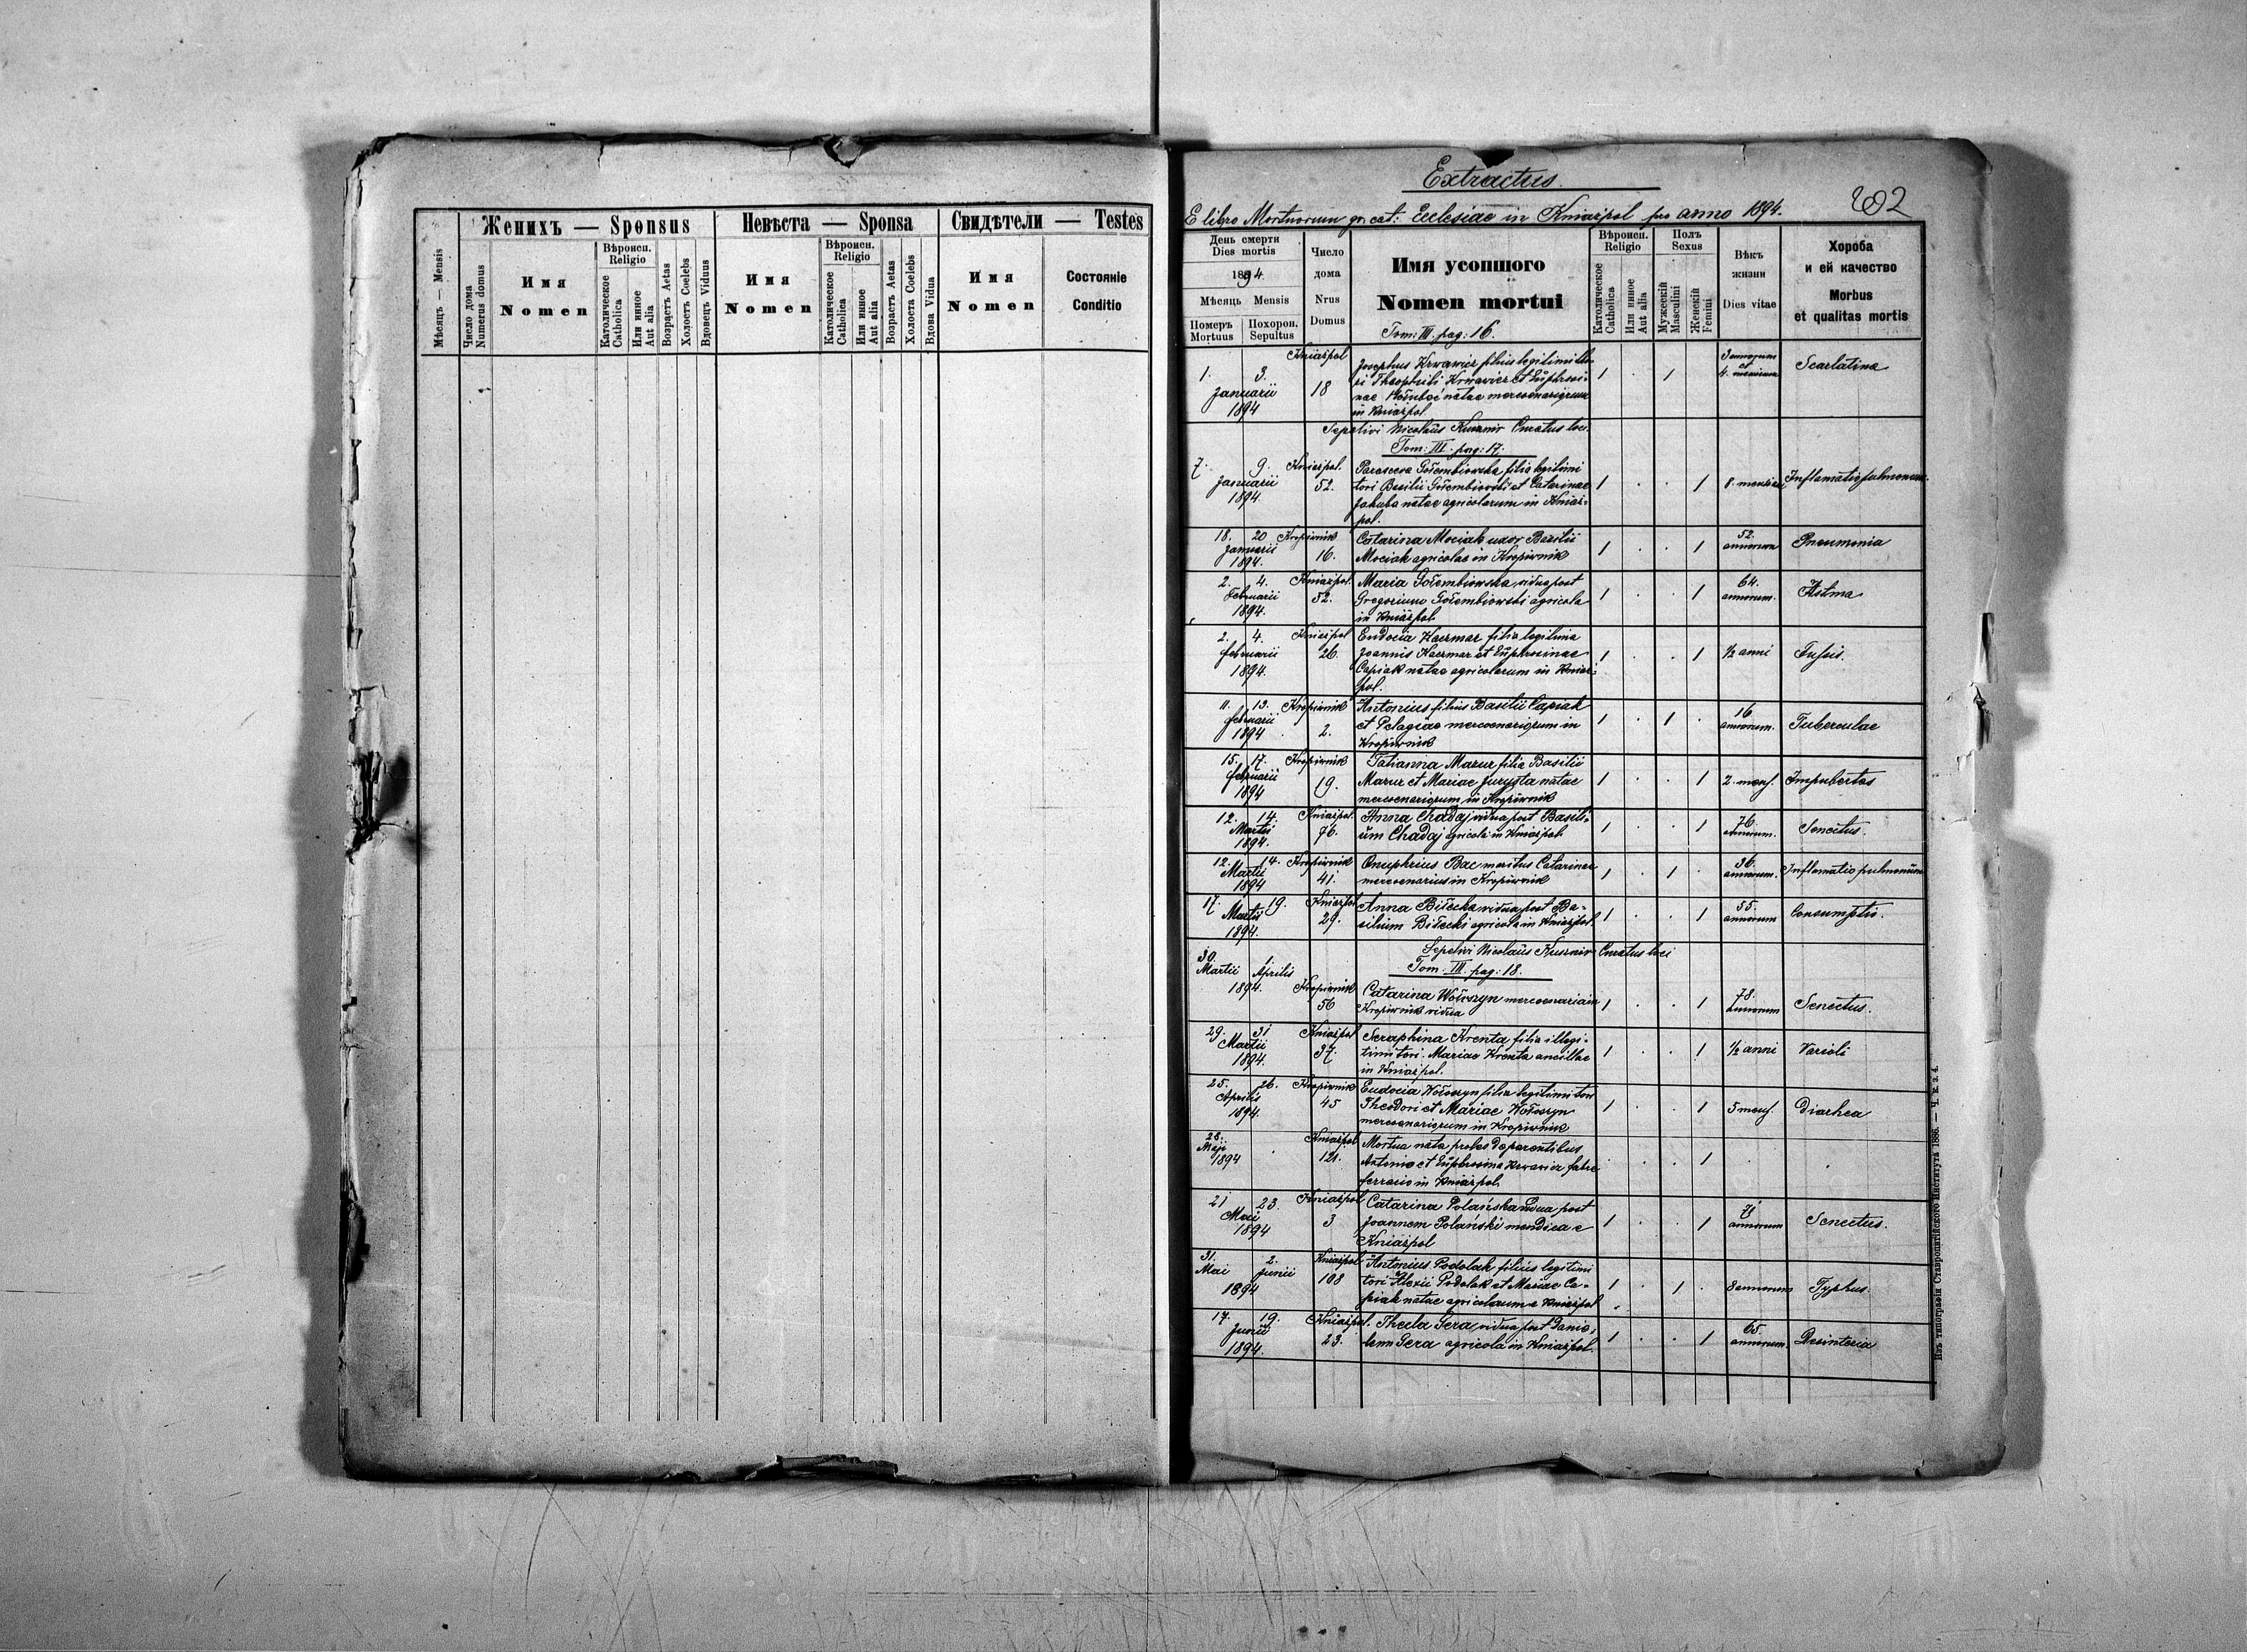 Женихъ — Sponsus
Невѣста — Sponsa
Свидѣтели — Testes
Мѣсяцъ — Mensis
Число дома
Numerus domus
Имя
Nomen
Вѣроисп.
Religio
Католическое
Catholica
Или иное
Aut alia
Возрастъ Aetas
Холостъ Coelebs
Вдовецъ Viduus
Имя
Nomen
Вѣроисп.
Religio
Католическое
Catholica
Или иное
Aut alia
Возрастъ Aetas
Холоста Coelebs
Вдова Vidua
Имя
Nomen
Состояніе
Conditio
Extractus.
202
E libro Mortuorum gr. cat: Ecclesiae in Kniaźpol pro anno 1894.
День смерти
Dies mortis
1894.
Мѣсяцъ Mensis
Померъ
Mortuus
Похорон.
Sepultus
Число
дома
Nrus
Domus
Имя усопшого
Nomen mortui
Tom: III. pag: 16.
Вѣроисп.
Religio
Католическое
Catholica
Или иное
Aut alia
Полъ
Sexus
Мужескій
Masculini
Женскій
Femini
Вѣкъ
жизни
Dies vitae
Хороба
и ей качество
Morbus
et qualitas mortis
1. 3.
Januarii
1894
Kniaźpol
18
Josephus Krwawicz filius legitimi tho-
ri Theophili Krwawicz et Euphrosi-
nae natae mercenariorum
in Kniaźpol.
1 1
3 annorum
et
4. mensium
Scarlatina
Sepelivi Nicolaüs Kusznir Curatus loci.
Tom: III. pag: 17.
7. 9.
Januarii
1894.
Kniaźpol.
52.
Parasceva Gołembiowska filia legitimi
tori Basilii Gołembiowski et Catarinae
Jakuba natae agricolarum in Kniaź-
pol.
1 . . 1
8. menses
Inflamatio pulmonum.
18. 20
Januarii
1894.
Kropiwnik
16.
Catarina Mociak uxor Basilii
Mociak agricolae in Kropiwnik
1 . . 1
52.
annorum
Pneumonia
2. 4.
Februarii
1894.
Kniaźpol.
52.
Maria Gołembiowska vidua post
Gregorium Gołembiowski agricola
in Kniaźpol
1 . . 1
64.
annorum.
Astma
2. 4.
februarii
1894.
Kniaźpol
26.
Eudocia Kaczmar filia legitima
Joannis Kaczmar et Euphrosinae
Capiak natae agricolarum in Kniaź-
pol.
1 . . 1
½ anni
Tussis.
11. 13.
februarii
1894
Kropiwnik
2.
Antonius filius Basilii Capiak
et Pelagiae mercenariorum in
Kropiwnik
1 . 1 .
16
annorum.
Tuberculae
15. 17.
februarii
1894
Kropiwnik
19.
Tatianna Mazur filia Basilii
Mazur et Mariae natae
mercenariorum in Kropiwnik
1 . . 1
2. mens.
Impubertas
12. 14.
Martii
1894.
Kniaźpol.
76.
Anna Chaday vidua post Basili-
üm Chadaj agricola in Kniaźpol.
1 . . 1
76.
annorum.
Senectus.
12. 14.
Martii
1894
Kropiwnik
41.
Onuphrius Bac maritus Catarinae
mercenarius in Kropiwnik
1 . 1 .
36.
annorum.
Inflamatio pulmonüm
17. 19.
Martii
1894.
Kniaźpol
29.
Anna Biłecka vidua post Ba-
silium Biłecki agricola in Kniaźpol.
1 . . 1
55.
annorum
Consumptio.
Sepelivi Nicolaüs Kusznir Curatus loci
Tom: III. pag: 18.
30. 1
Martii Aprilis
1894.
Kropiwnik
56
Catarina Wołoszyn mercenaria in
Kropiwnik vidua
1 . . 1
78.
annorum
Senectus.
29. 31
Martii
1894.
Kniaźpol
37.
Seraphina Krenta filia illegi-
timi tori. Mariae Krenta ancillae
in Kniaźpol.
1 . . 1
½ anni
Varioli
25. 26.
Aprilis
1894.
Kropiwnik
45
Eudocia Wołoszyn filia legitimi tori
Theodori et Mariae Wołoszyn
mercenariorum in Kropiwnik
1 . . 1
5 mens.
Diarhea
28.
Maji
1894
Kniaźpol
121.
Mortua nata proles de parentibus
Antonio et Euphrosina Krwawicz fabro
ferrario in Kniaźpol.
. . . 1
21 23.
Mai
1894
Kniaźpol
3
Catarina Polańska vidua post
Joannem Polański mendica e
Kniaźpol
1 . . 1
71
annorum
Senectus.
31. 2.
Mai Junii
1894
Kniaźpol
108
Antonius Podolak filius legitimi
tori Alexii Podolak et Mariae Ca-
piak natae agricolarum e Kniaźpol
1 . 1 .
8 annorum
Typhus.
17. 19.
Junii
1894.
Kniaźpol.
23.
Thecla Gera, vidua post Danie-
lem Gera agricola in Kniaźpol.
1 . . 1
65.
annorum.
Desinteria
Изъ типографіи Ставропигійского Института 1886. — Ч. к. з. 4.